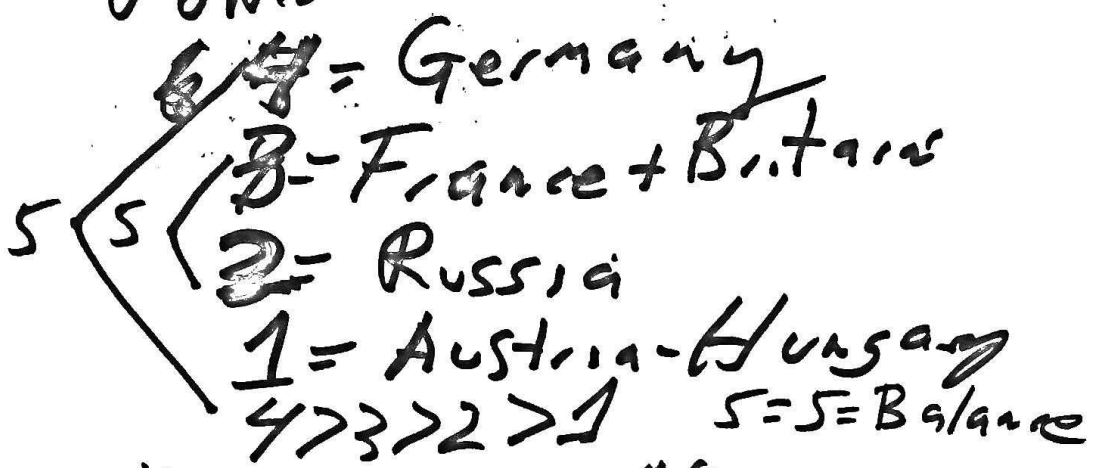 4 = Germany
3 = France + Britain
5 5
2 = Russia
1 = Austria-Hungary
4>3>2>1 5=5=Balance